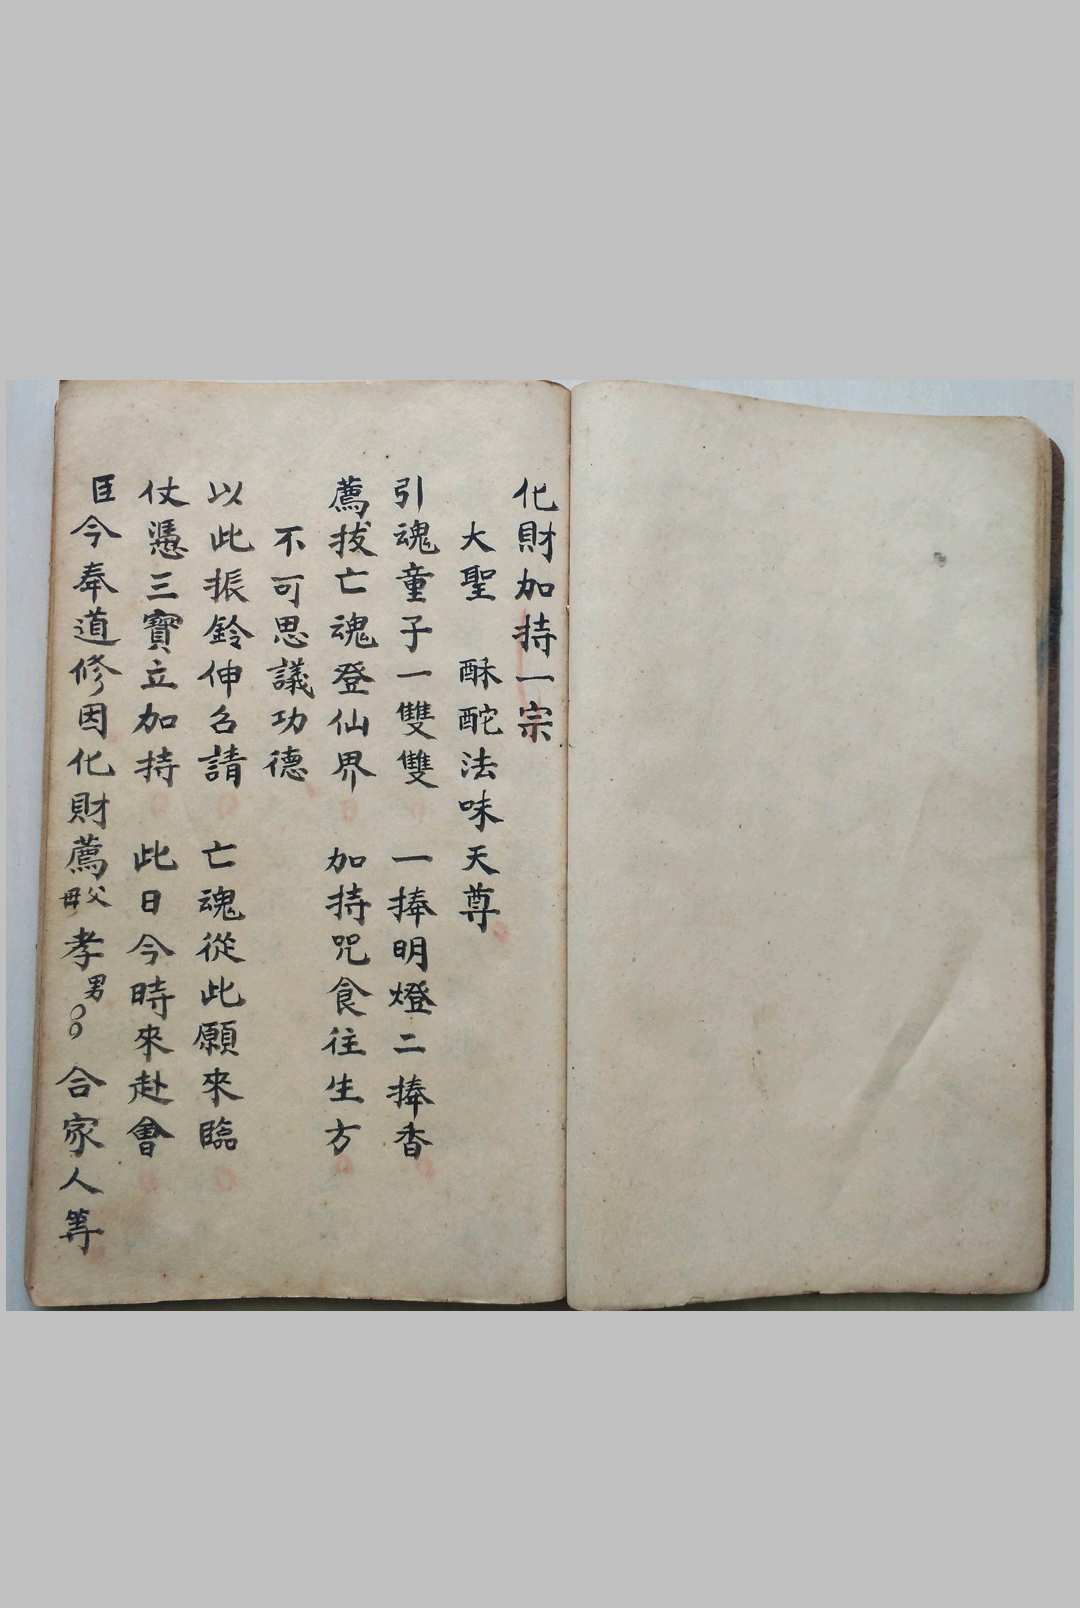 化財加持一宗
大聖　酥酡法味天尊
引魂童子一雙雙　一捧明燈二捧香
薦拔亡魂登仙界　加持咒食往生方
不可思議功德
以此振鈴伸召請　亡魂從此願來臨
仗憑三寶立加持　此日今時來赴會
臣今奉道修因化財薦父母孝男〇〇合家人等